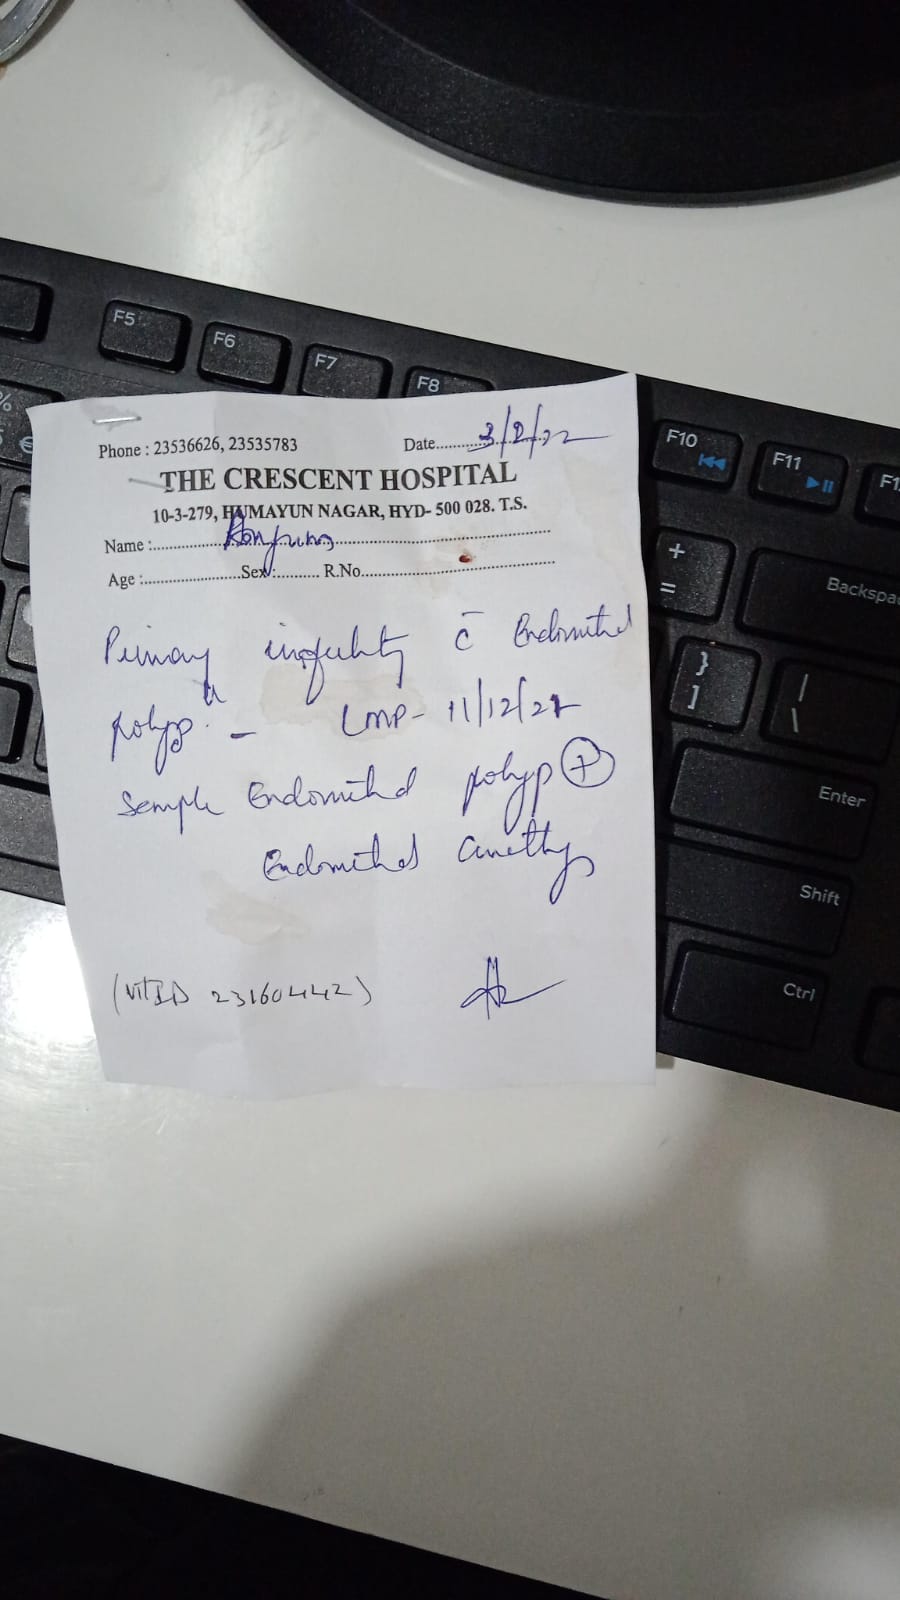 F5
F6
F7
F8
F10
F11
%
5 €
Phone : 23536626, 23535783 Date 3/2/22
THE CRESCENT HOSPITAL
10-3-279, HUMAYUN NAGAR, HYD- 500 028. T.S.
Name :
Age : Sex : R.No.
Primary infertility c̄ Endometrial
polyp. – LMP - 11/12/21
Sample Endometrial polyp +
Endometrial
(VITID 23160442)
+
=
Backspa
}
]
|
\
Enter
Shift
Ctrl